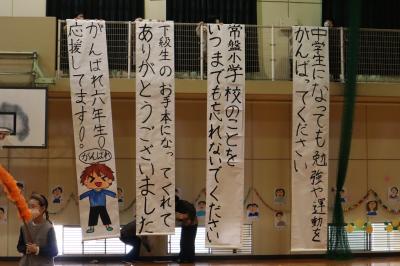 中学生になっても勉強や運動を
がんばってください
常盤小学校のことを
いつまでも忘れないでください
下級生のお手本になってくれて
ありがとうございました
がんばれ六年生。
応援してます!!
がんばれ